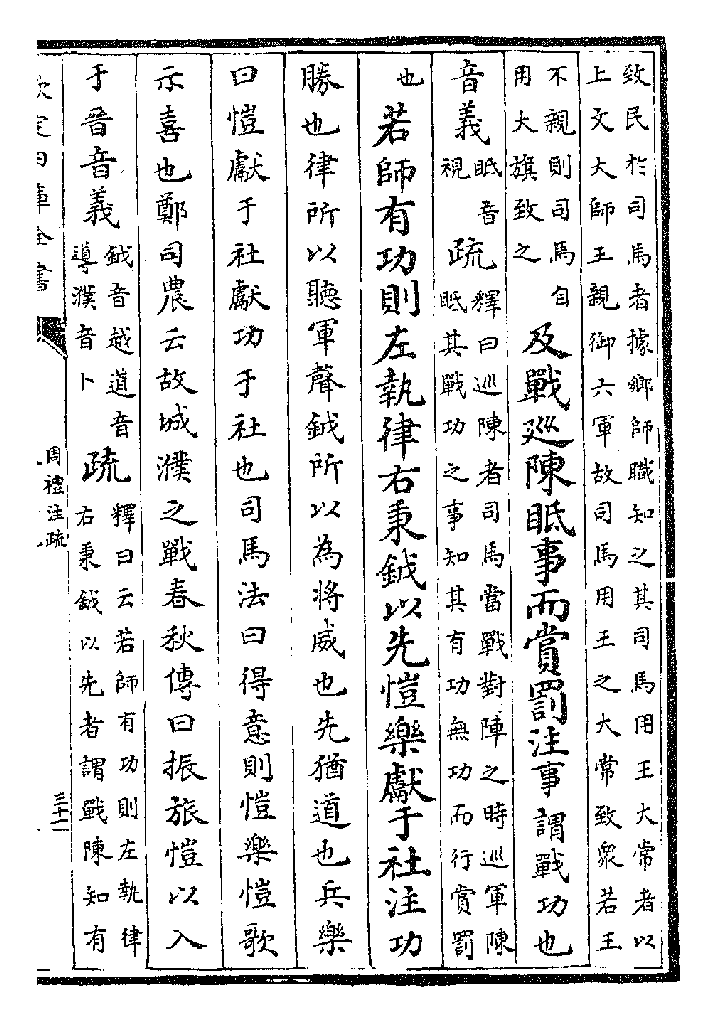 致民於司馬者據鄉師職知之其司馬用王大常者以
上文大師王親御六軍故司馬用王之大常致衆若王
不親則司馬自
用大旗致之
及戰巡陳眡事而賞罰注事謂戰功也
音義
眡音
視
疏
釋曰巡陳者司馬當戰對陣之時巡軍陳
眡其戰功之事知其有功無功而行賞罰
也
若師有功則左執律右秉鉞以先愷樂獻于社注功
勝也律所以聽軍聲鉞所以為將威也先猶道也兵樂
曰愷獻于社獻功于社也司馬法曰得意則愷樂愷歌
示喜也鄭司農云故城濮之戰春秋傳曰振旅愷以入
于晉音義
鉞音越道音
導濮音卜
疏
釋曰云若師有功則左執律
右秉鉞以先者謂戰陳知有
欽定四庫全書
周禮注疏
三十二